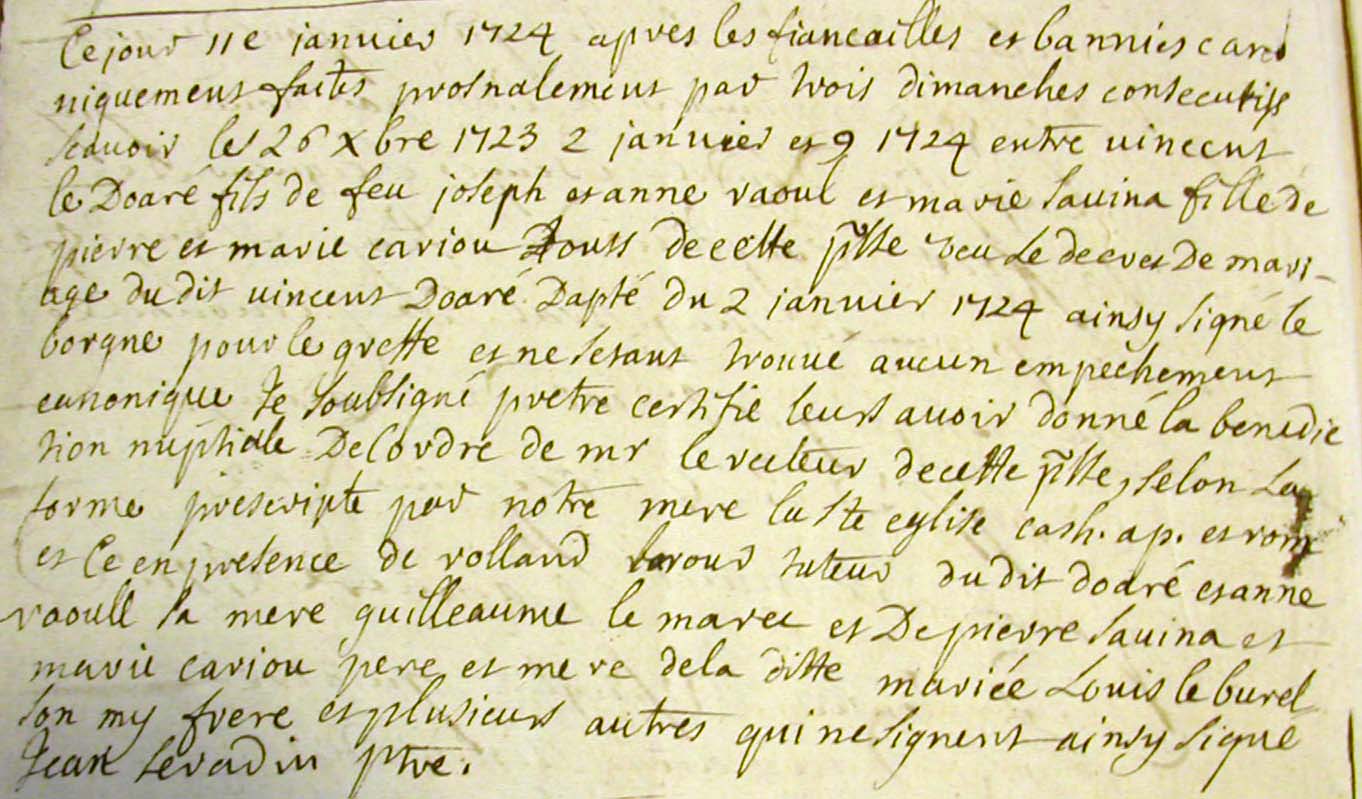 Ce jour 11e janvier 1724 apres les fiancailles et bannies cano
niquement faites prosnalement par trois dimanches consecutifs
scavoir les 26 Xbre 1723 2 janvier et 9 1724 entre vincent
le Doaré fils de feu joseph et anne raoul et marie savina fille de
pierre et marie cariou touts de cette psse veu le decret De mari-
age du dit vincent Doaré Dapté du 2 janvier 1724 ainsy signé le
borgne pour le greffe et ne sestant trouvé aucun empechement
canonique Je soubsigné pretre certifie leurs avoir donné la benedic
tion nuptiale De lordre de mr le recteur de cette psse, selon La
forme prescripte par notre mere la ste eglise cath. ap. et rom
et Ce en presence de rolland tuteur du dit doaré et anne
raoull sa mere guilleaume le marec et De pierre savina et
marie cariou pere et mere de la ditte mariée Louis le burel
son my frere et plusieurs autres qui ne signent ainsy signé
Jean ptre.